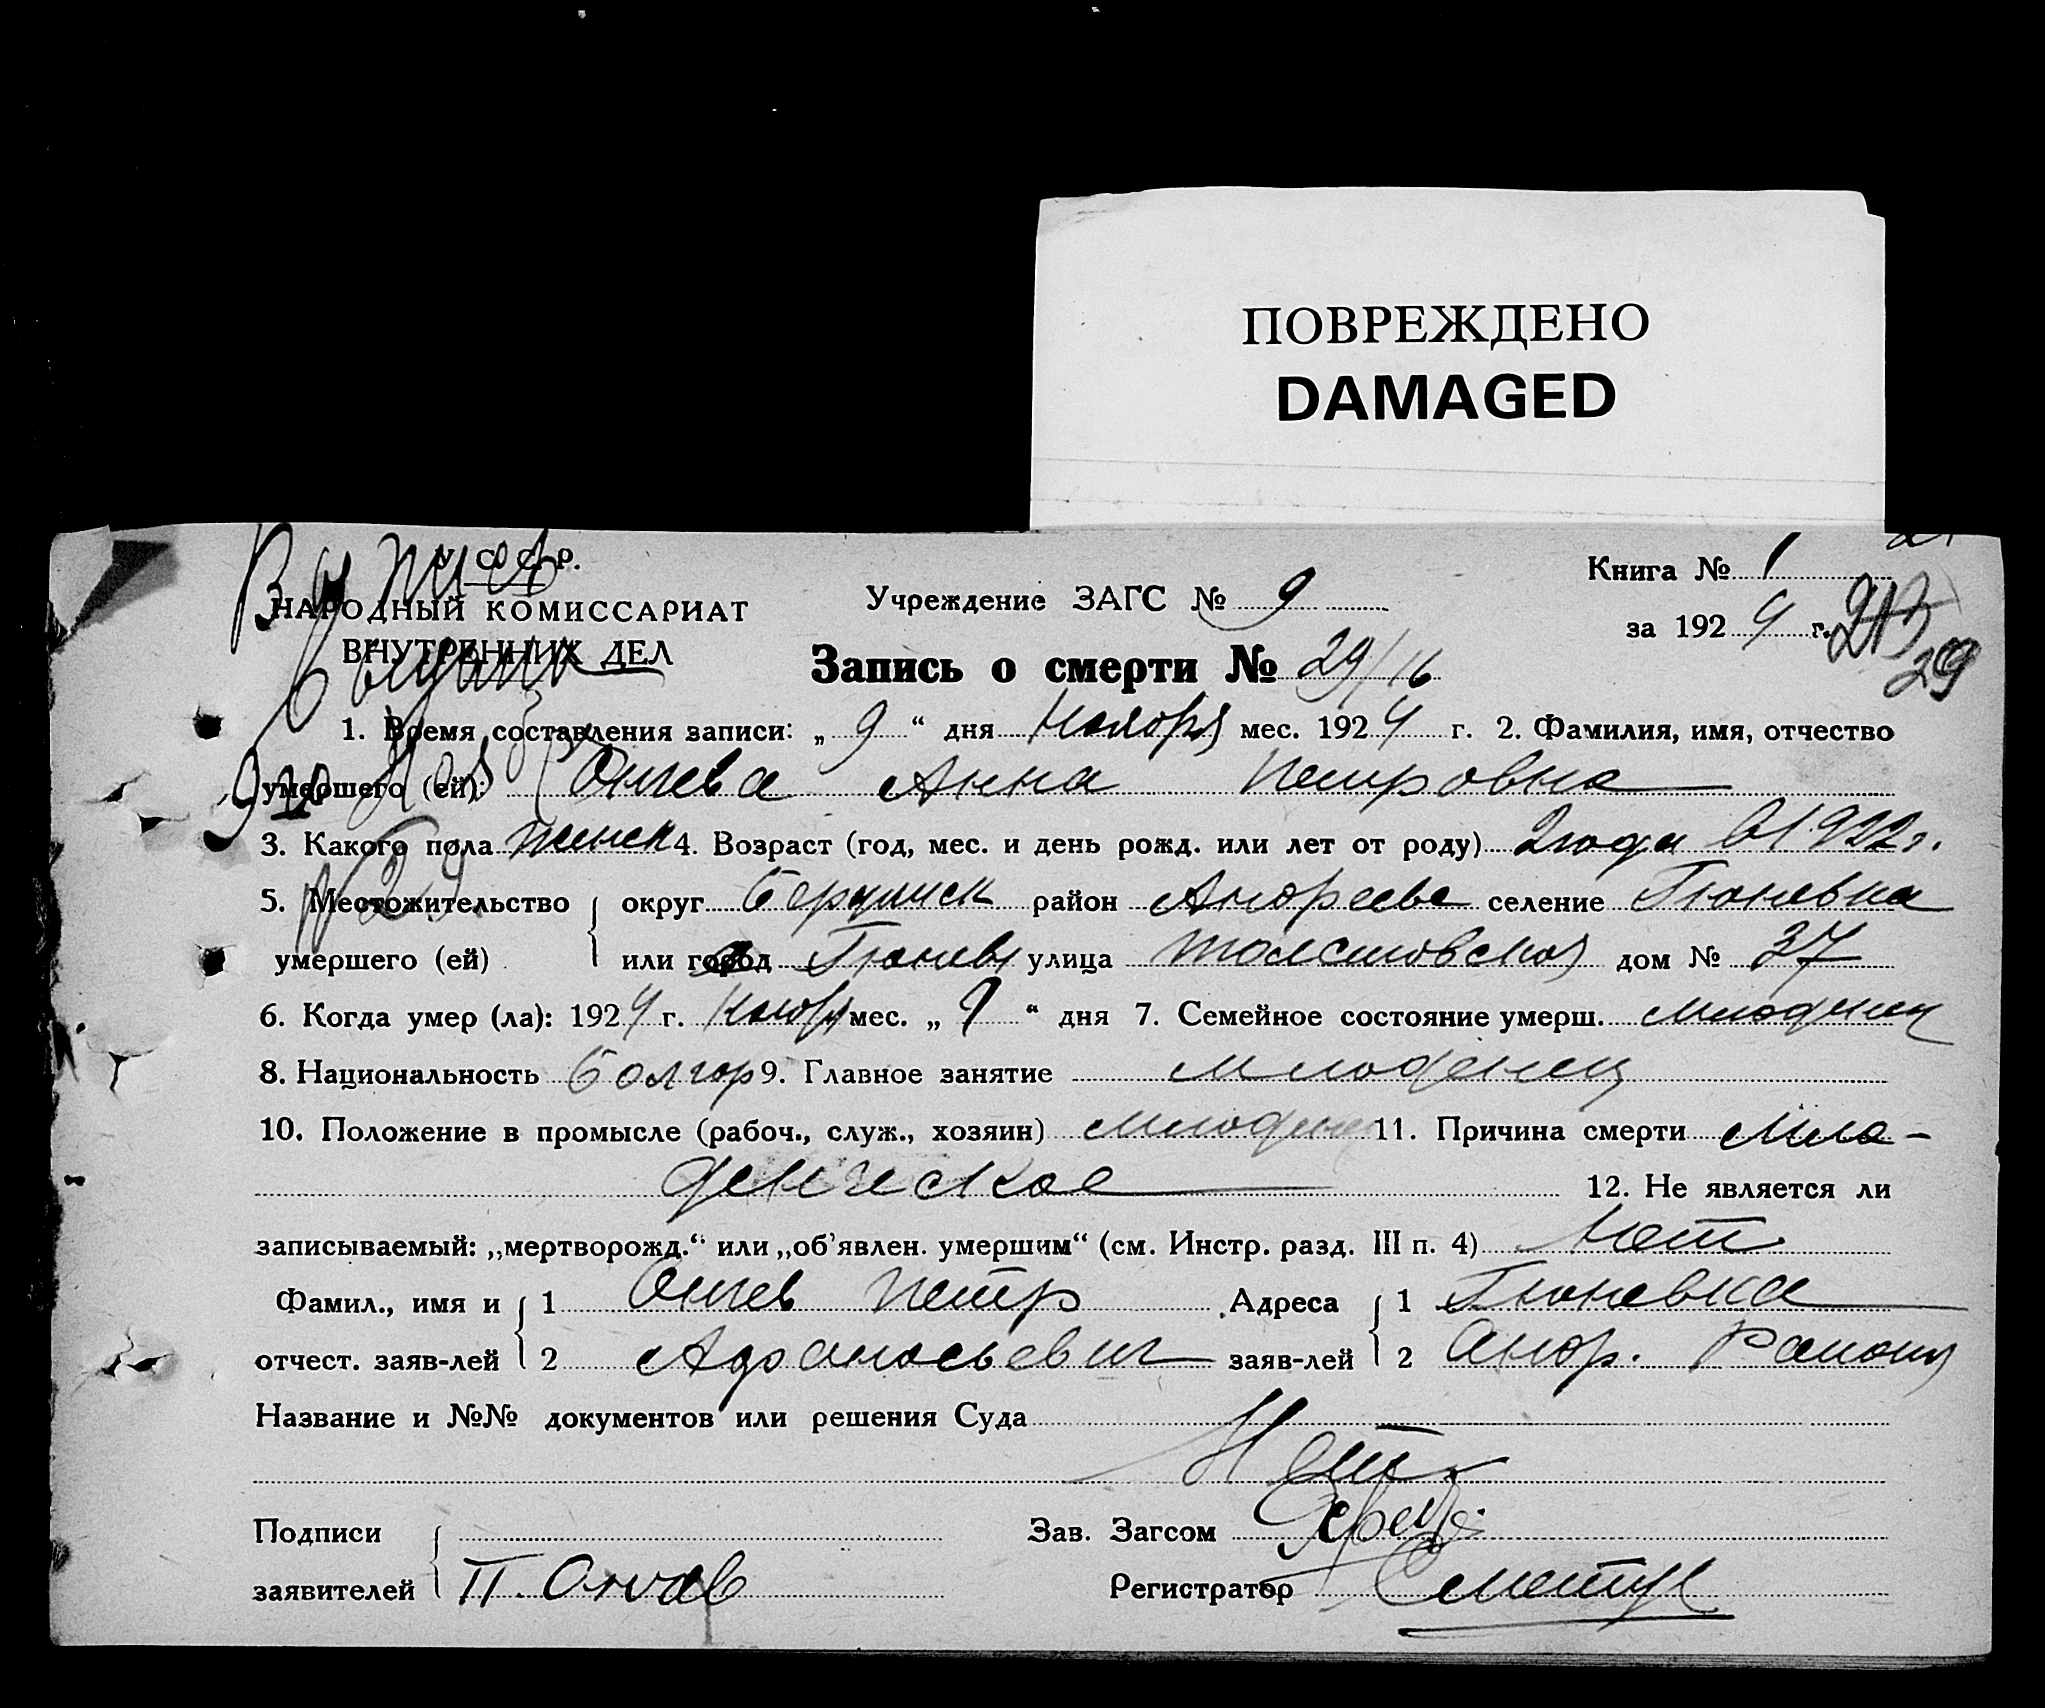 ПОВРЕЖДЕНО
DAMAGED
У. С. С. Р.
НАРОДНЫЙ КОМИССАРИАТ
ВНУТРЕННИХ ДЕЛ
Учреждение ЗАГС № 9
Книга № 1
за 1924 г.
29
Запись о смерти № 29/16
1. Время составления записи: „ 9 “ дня Ноября мес. 1924 г. 2. Фамилия, имя, отчество
умершего (ей): Анна Петровна
3. Какого пола женск 4. Возраст (год, мес. и день рожд. или лет от роду) 2 года в 1922 г.
5. Местожительство округ Бердянск район Андреевс селение Гюневка
умершего (ей) или город Гюневк улица Толстовская дом № 37
6. Когда умер (ла): 1924 г. Ноября мес. „ “ дня 7. Семейное состояние умерш. младенец
8. Национальность болгар 9. Главное занятие младенец
10. Положение в промысле (рабоч., служ., хозяин) младенец 11. Причина смерти Мла-
денческое 12. Не является ли
записываемый: „мертворожд.“ или „об’явлен. умершим“ (см. Инстр. разд. III п. 4) Нет
Фамил., имя и 1 Петр Адреса 1 Гюневка
отчест. заяв-лей 2 заяв-лей 2 Андр. Района
Название и №№ документов или решения Суда
Нет
Подписи Зав. Загсом
заявителей П. Регистратор